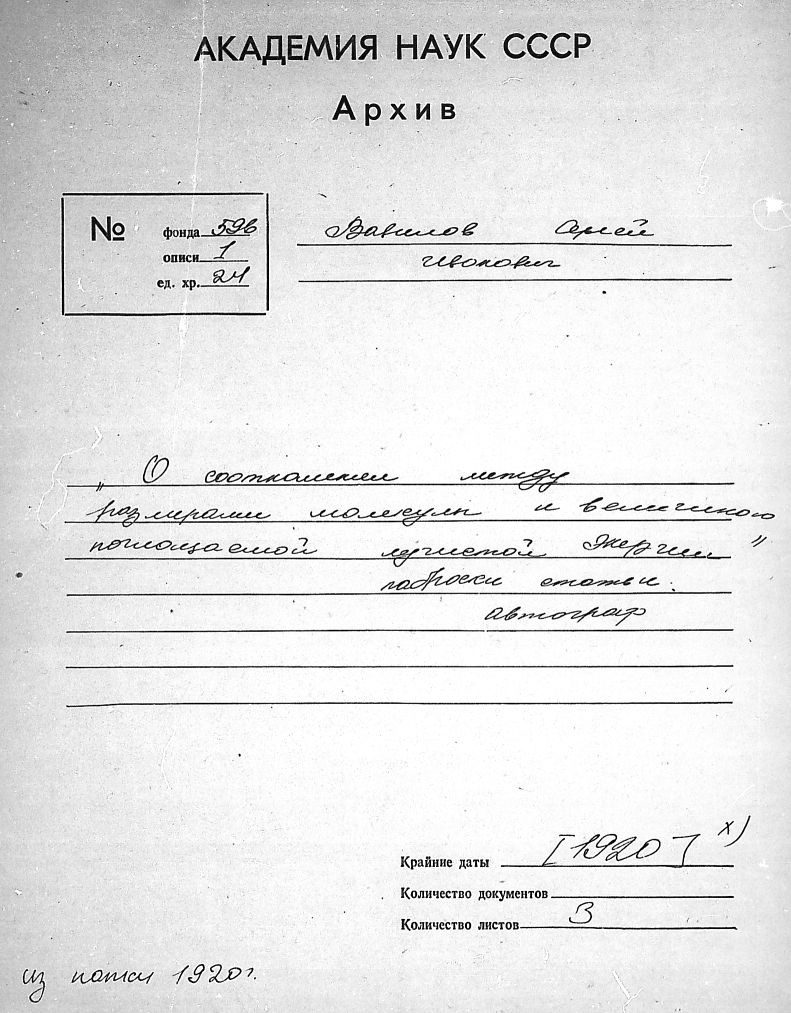 АКАДЕМИЯ НАУК СССР
Архив
№ фонда 596
описи 1
ед. хр. 24
Вавилов Сергей
Иванович
„О соотношении между
размерами молекулы и величиною
поглощаемой лучистой энергии“
наброски статьи.
автограф
Крайние даты [1920] х)
Количество документов
Количество листов 3
из папки 1920 г.